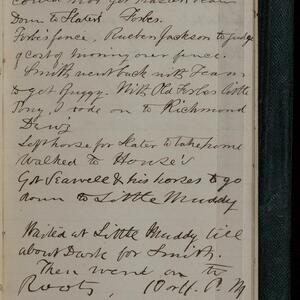 Down to Slater's Forbes.
Forbes' fence, Rueben Jackson to judge
of cost of moving over fence.
Smith went back with Team
to get Buggy. With Old Forbes' little
Pony, I rode on to Richmond
Left horse for Slater to take home
Walked to House's
Got Seawell & his horses to go
down to Little Muddy
Waited at Little Muddy till
about Dark for Smith.
Then went on to
Roots, 10 or 11. P.M